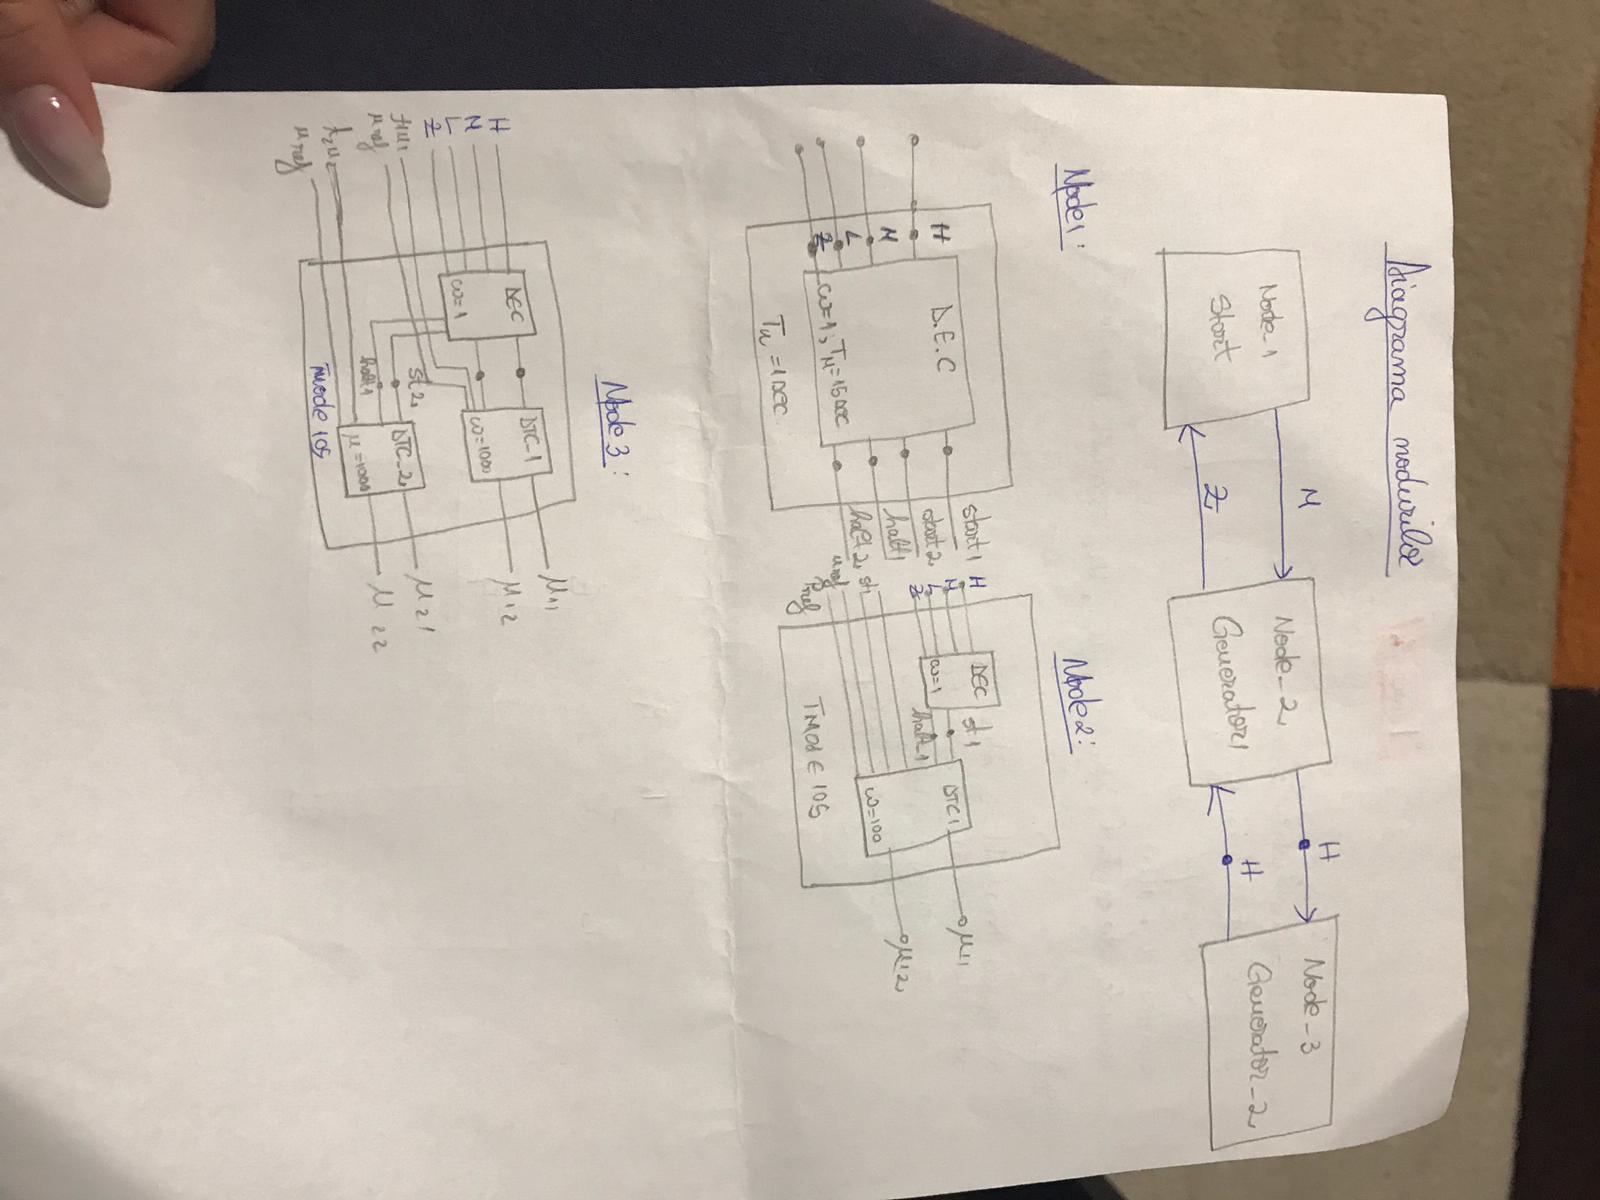 Diagrama nodurilor
Node_1
Start
M
Z
Node_2
Generator1
H
H
Node_3
Generator_2
Node1:
H
M
L
Z
D.E.C
ω=1; T_M=15DEC
T_u=1DEC
start1
start2
halt1
halt2
Node2:
H
M
L
Z
st1
uref
Pref
DEC
ω=1
st1
halt_1
DTC1
ω=100
TMODE 10S
μ11
μ12
Node3:
H
M
L
Z
μref
μref
DEC
ω=1
DTC_1
ω=1000
st2
halt1
DTC_2
μ=1000
Tmode 10S
μ11
μ12
μ21
μ22